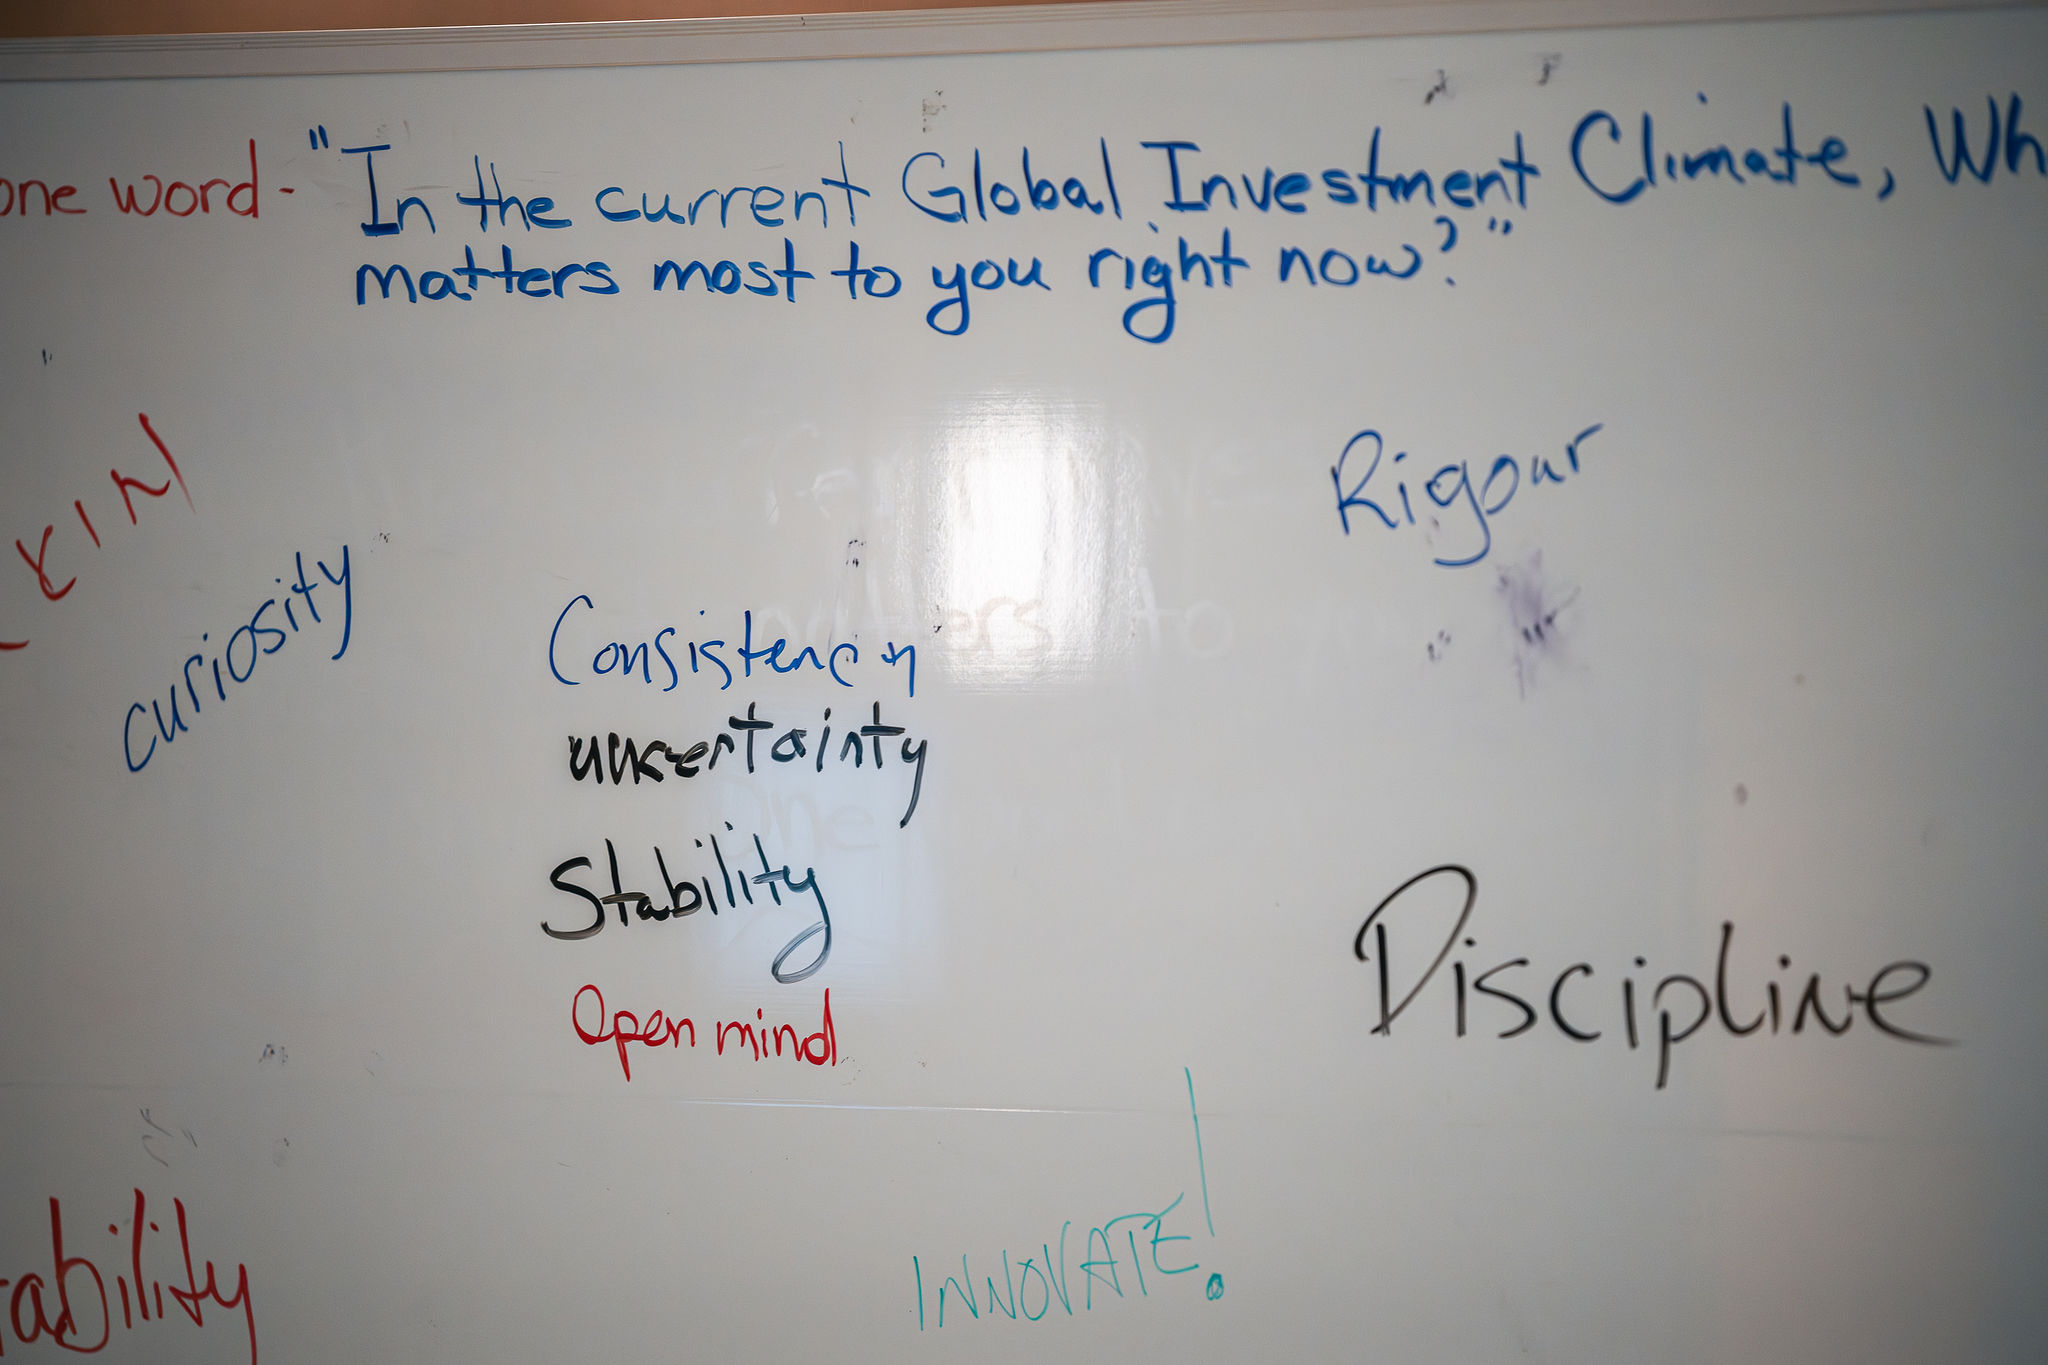 one word - "In the current Global Investment Climate, Wh
matters most to you right now?"
Rigour
curiosity
Consistency
uncertainty
Stability
Open mind
Discipline
INNOVATE!
ability